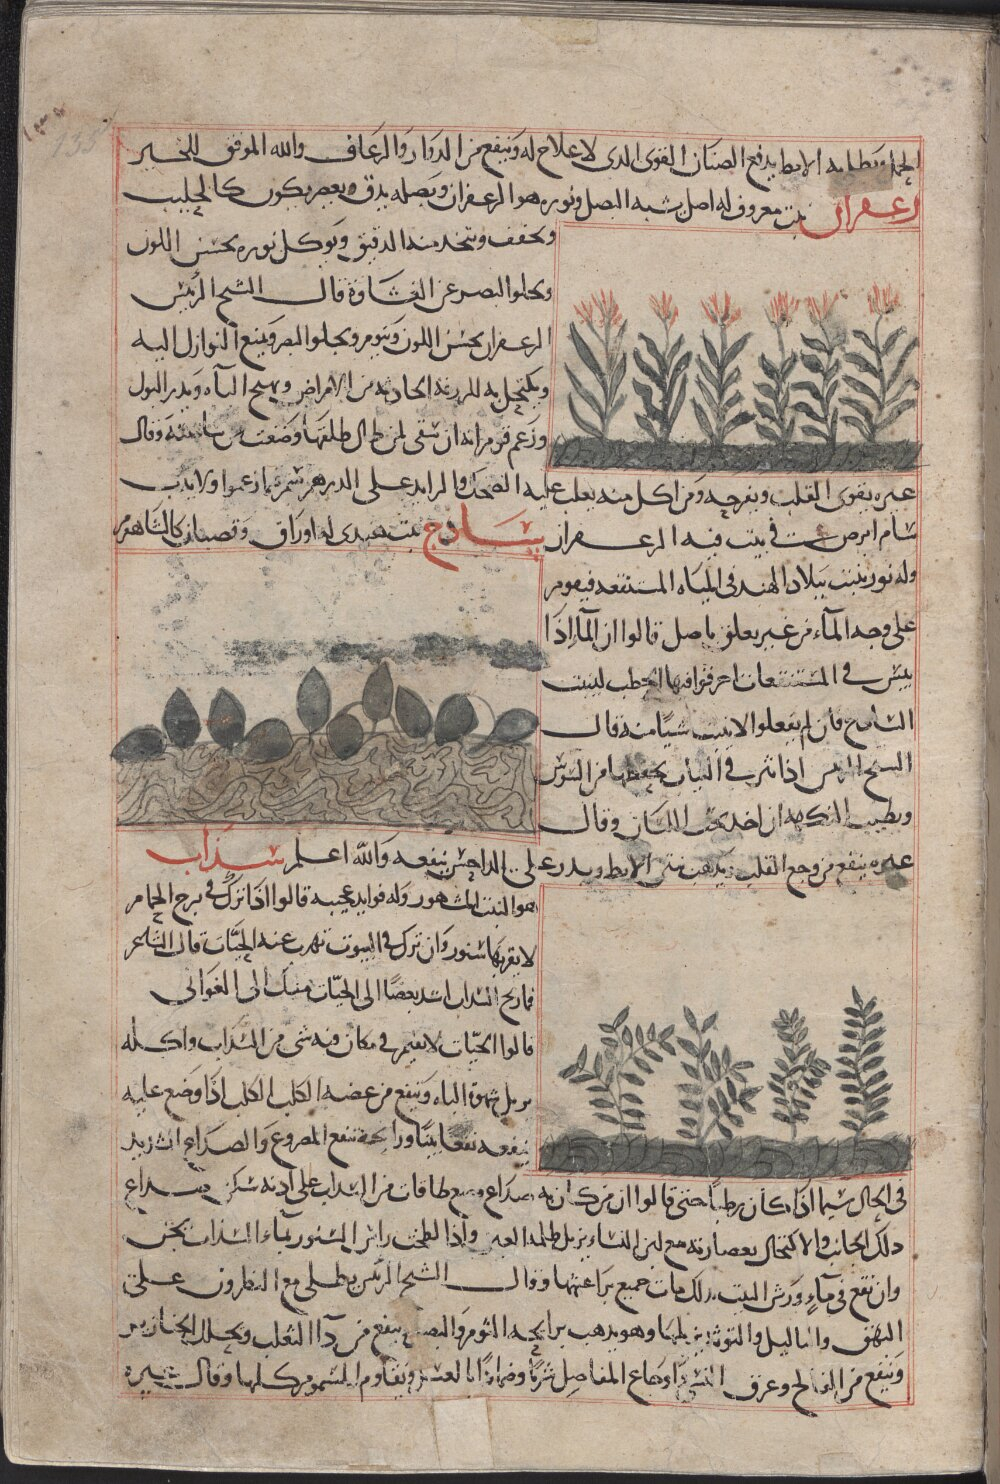 به الابط يدفع الصنان القوى الذى لا علاج له وينفع من الدوار والرعاف والله الموفق للخير
زعفران نبت معروف له اصل يشبه البصل ونوره هو الزعفران وبصله يدق ويعصر يكون كالحليب
ويجفف ويتخذ منه الدقيق ويوكل نوره يحسن اللون
ويجلوا البصر عن الغشاوة قال الشيخ الرئيس
الزعفران يحسن اللون وينوم ويجلوا البصر ويمنع النوازل اليه
ويكتحل به للزرقة الحادثة من الامراض ويهيج الباه ويدر البول
وزعم قوم انه ان سقى لمن طال طلقها وضعت من ساعته وقال
غيره يقوى القلب ويفرحه ومن اكل منه يغلب عليه الضحك والزايد على الدرهم سم زعموا ولا يدب
سام ابرص فى بيت فيه الزعفران ساذج نبت هندى له اوراق وقضبان كالشاهفرم
وله نور ينبت ببلاد الهند فى المياه المستنقعة فيقوم
على وجه الماء من غير تعلق باصل قالوا ان الماء اذا
يبس فى المستنقعات احرقوا فيها الحطب لينبت
الساذج فان لم يفعلوا لا ينبت شيًا منه قال
الشيخ الرئيس اذا نثر فى الثياب يحفظها من السوس
ويطيب النكهة ان اخذ تحت اللسان وقال
غيره ينفع من وجع القلب ويذهب نتن الابط ويذر على الداحس ينفعه والله اعلم سذاب
هو النبت المشهور وله فوايد عجيبه قالوا اذا ترك فى برج الحمام
لا يقربها سنور وان ترك فى البيوت تهرب عنه الحيات قال الشاعر
فما ريح السذاب اشد بغضًا الى الحيات منك الى الغوانى
قالوا الحيّات لا تقيم فى مكان فيه شى من السذاب واكله
يزيل شهوة الباه وينفع من عضه الكلب الكلب اذا وضع عليه
ينفعه نفعا بيّنا ورايحته تنفع المصروع والصداع الشديد
فى الحال سيما اذا كان رطبا حتى قالوا ان من كان به صداع وضع طاقات من السذاب على اذنه سكن صداع
ذلك الجانب والاكتحال بعصارته مع لبن النساء يزيل ظلمة العين واذا لطخ راس السنور بماء السذاب يجن
وان نقع فى ماءٍ ورش البيت بذلك مات جميع براغيثها وقال الشيخ الرئيس يطلى مع النطرون على
البهق والثاليل والتوثة يزيلها وهو يذهب برايحة الثوم والبصل ينفع من دآ الثعلب ويحلل الخنازير
وينفع من الفالج وعرق النسا واوجاع المفاصل شربًا وضمادًا بالعسل ويقاوم السموم كلها وقال غيره